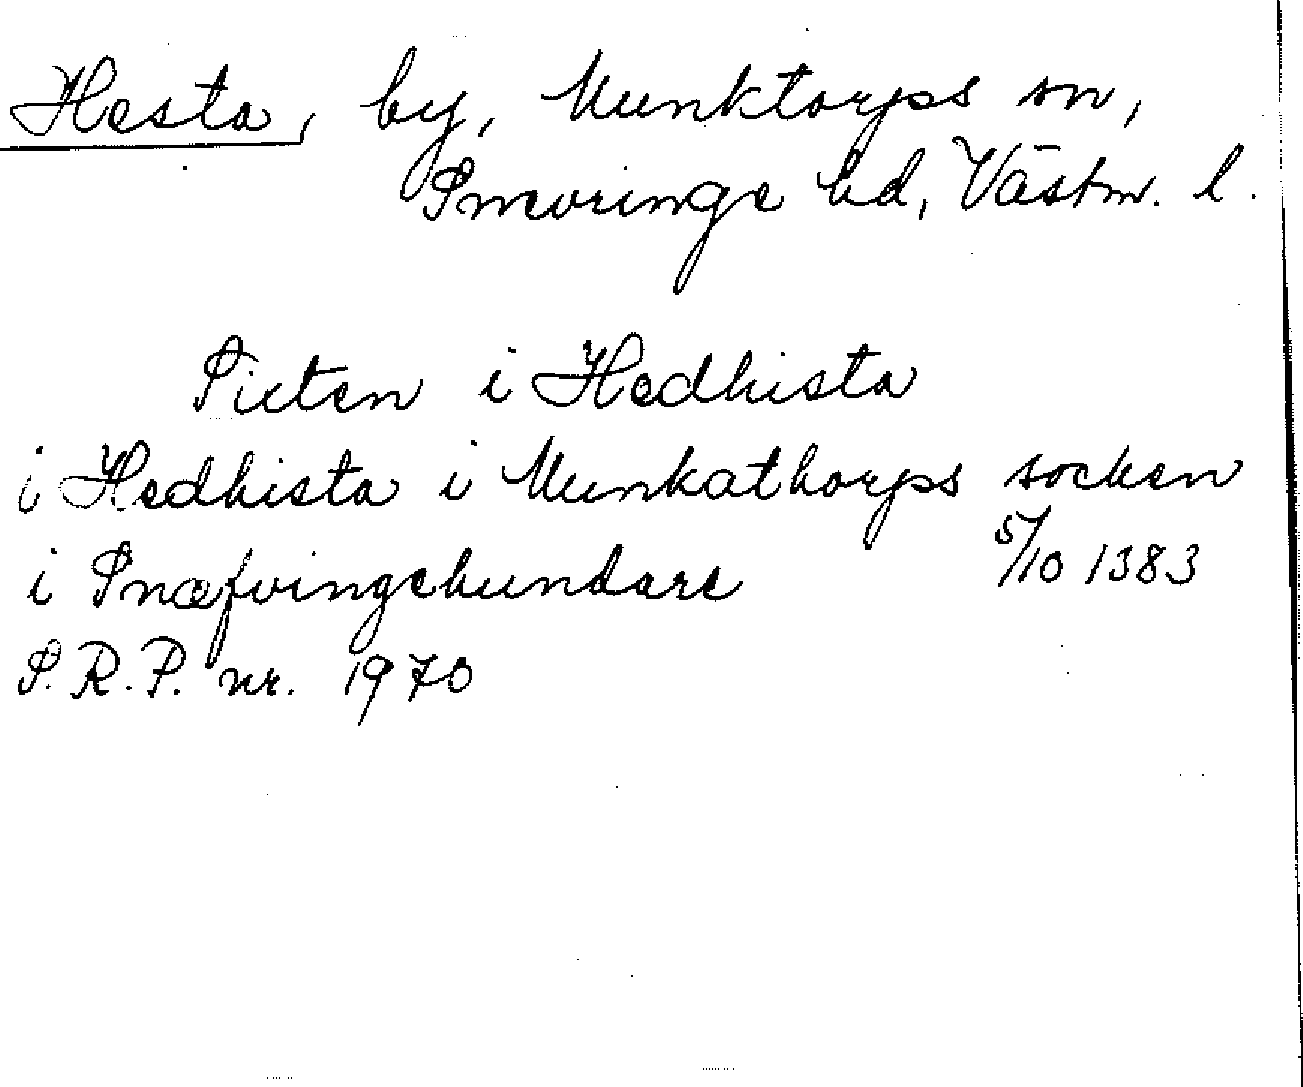 Hesta, by, Munktorps sn,
Snevringe hd, Västm. l.
Sixten i Hedhista
i Hedhista i Munkathorps socken
i Snæfvingehundare 5/10 1383
S.R.P. nr. 1970